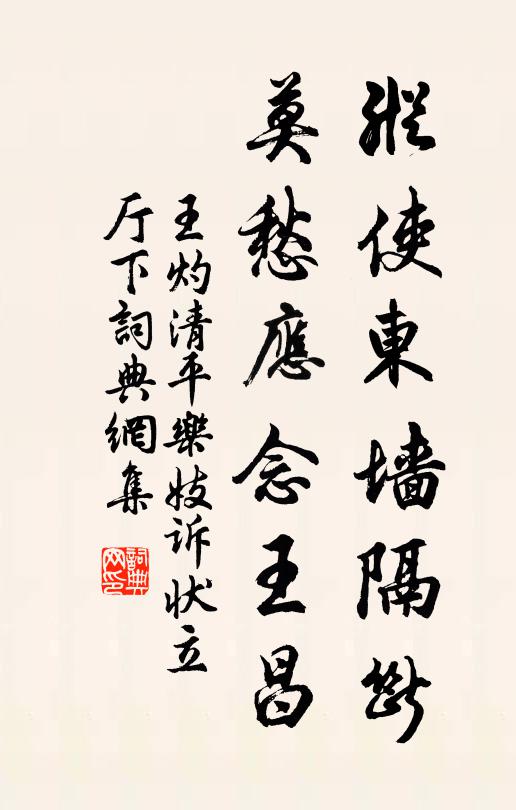 縱使東墙隔斷
莫愁應念王昌
王灼清平樂妓诉状立
厅下詞典網集
詞典网印